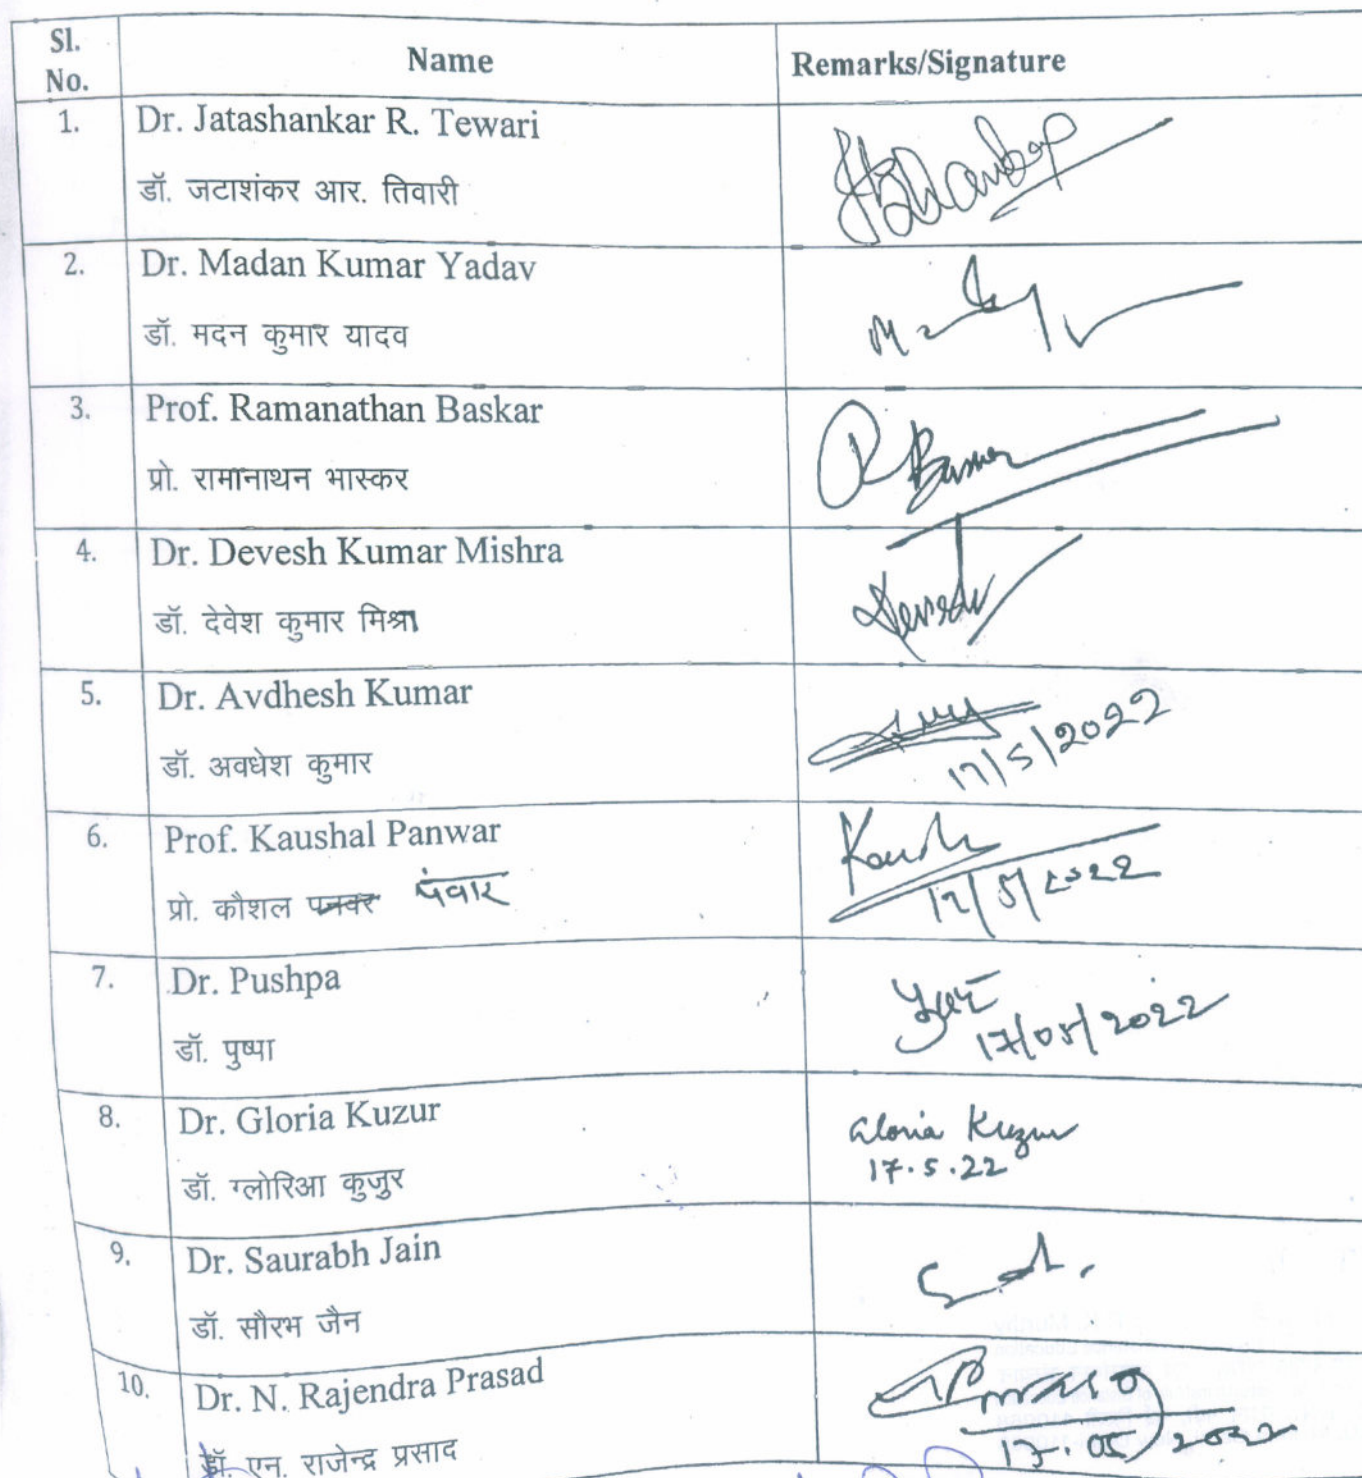 Sl. No. Name Remarks/Signature
1. Dr. Jatashankar R. Tewari
डॉ. जटाशंकर आर. तिवारी
2. Dr. Madan Kumar Yadav
डॉ. मदन कुमार यादव
3. Prof. Ramanathan Baskar
प्रो. रामानाथन भास्कर
4. Dr. Devesh Kumar Mishra
डॉ. देवेश कुमार मिश्रा
5. Dr. Avdhesh Kumar
डॉ. अवधेश कुमार 17/5/2022
6. Prof. Kaushal Panwar
प्रो. कौशल पनवर पंवार 17/5/2022
7. Dr. Pushpa
डॉ. पुष्पा 17/05/2022
8. Dr. Gloria Kuzur Gloria Kuzur
डॉ. ग्लोरिआ कुजुर 17.5.22
9. Dr. Saurabh Jain
डॉ. सौरभ जैन
10. Dr. N. Rajendra Prasad
डॉ. एन. राजेन्द्र प्रसाद 17.05.2022